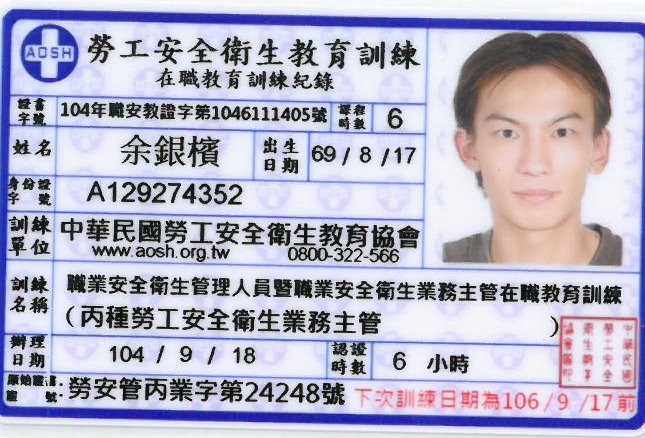 AOSH
勞工安全衛生教育訓練
在職教育訓練紀錄
證書字號 104年職安教證字第1046111405號 課程時數 6
姓名 余銀檳 出生日期 69 / 8 / 17
身份證字號 A129274352
訓練單位 中華民國勞工安全衛生教育協會
www.aosh.org.tw 0800-322-566
訓練名稱 職業安全衛生管理人員暨職業安全衛生業務主管在職教育訓練
(丙種勞工安全衛生業務主管 )
辦理日期 104 / 9 / 18 認證時數 6 小時
勞安管丙業字第24248號 下次訓練日期為106/9/17前